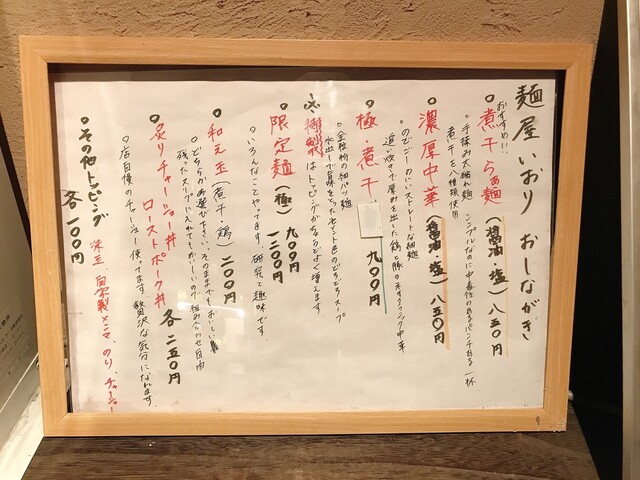 麺屋いおり おしながき
おすすめ!!
煮干らぁ麺(醤油・塩)八五〇円
手揉み太縮れ麺 シンプルなのに中毒性のあるパンチある一杯
煮干を八種類使用
濃厚中華(醤油・塩)八五〇円
のどごしのいいストレートな細麺
追い炊きで厚みを出した鶏と豚のネオクラシック中華
極・煮干 九〇〇円
全粒粉の細パツ麺
水出しで旨味をとったセメント色のどろどろスープ
特製はトッピングがちょうどよく増えます。
限定麺(極)九〇〇円 一二〇〇円
いろんなことやってます。研究と趣味です
和え玉(煮干・鶏)二〇〇円
どちらかお選び下さい。そのままでもおいしいし
残ったスープに入れてもおいしいので組み合わせ自由
炙りチャーシュー丼 ローストポーク丼 各二五〇円
店自慢のチャーシュー使ってます。贅沢な気分になれます。
その他トッピング 味玉、自家製メンマ、のり、チャーシュー
各一〇〇円